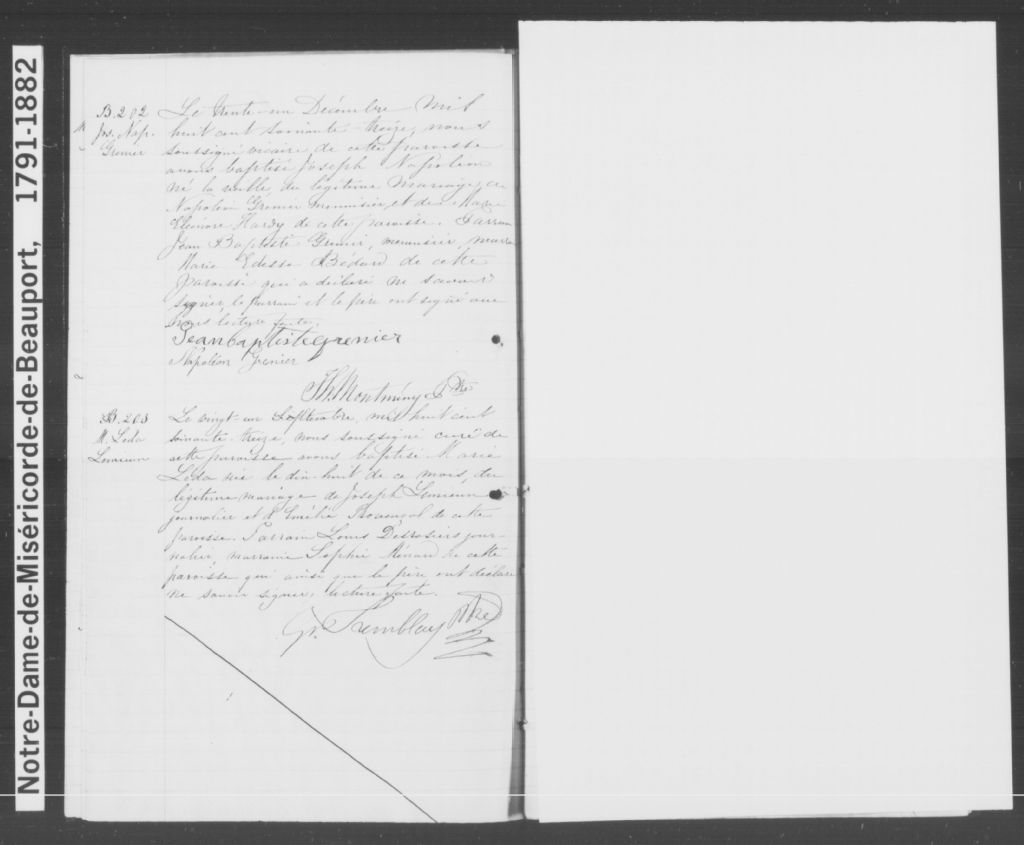 Notre-Dame-de-Miséricorde-de-Beauport, 1791-1882
B. 202
Jos. Nap.
Grenier
Le trente-un Décembre mil
huit cent soixante-treize, nous
soussigné vicaire de cette paroisse
avons baptisé Joseph Napoléon
né la veille, du légitime mariage de
Napoléon Grenier menuisier, et de Marie
Eléonore Hardy de cette paroisse. Parrain
Jean Baptiste Grenier, menuisier, marraine
Marie Edesse Bédard de cette
paroisse qui a déclaré ne savoir
signer, le parrain et le père ont signé avec
nous lecture faite.
Jean baptiste grenier
Napoléon Grenier
Th. Montminy Ptre
B. 203
M. Léda
Le vingt-un Septembre, mil huit cent
soixante-treize, nous soussigné curé de
cette paroisse avons baptisé Marie
Léda née le dix-huit de ce mois, du
légitime mariage de Joseph
journalier et d'Emélie de cette
paroisse. Parrain Louis Desrosiers jour-
nalier, marraine Sophie Ménard de cette
paroisse qui ainsi que le père ont déclaré
ne savoir signer, lecture faite.
Gr. Tremblay Ptre